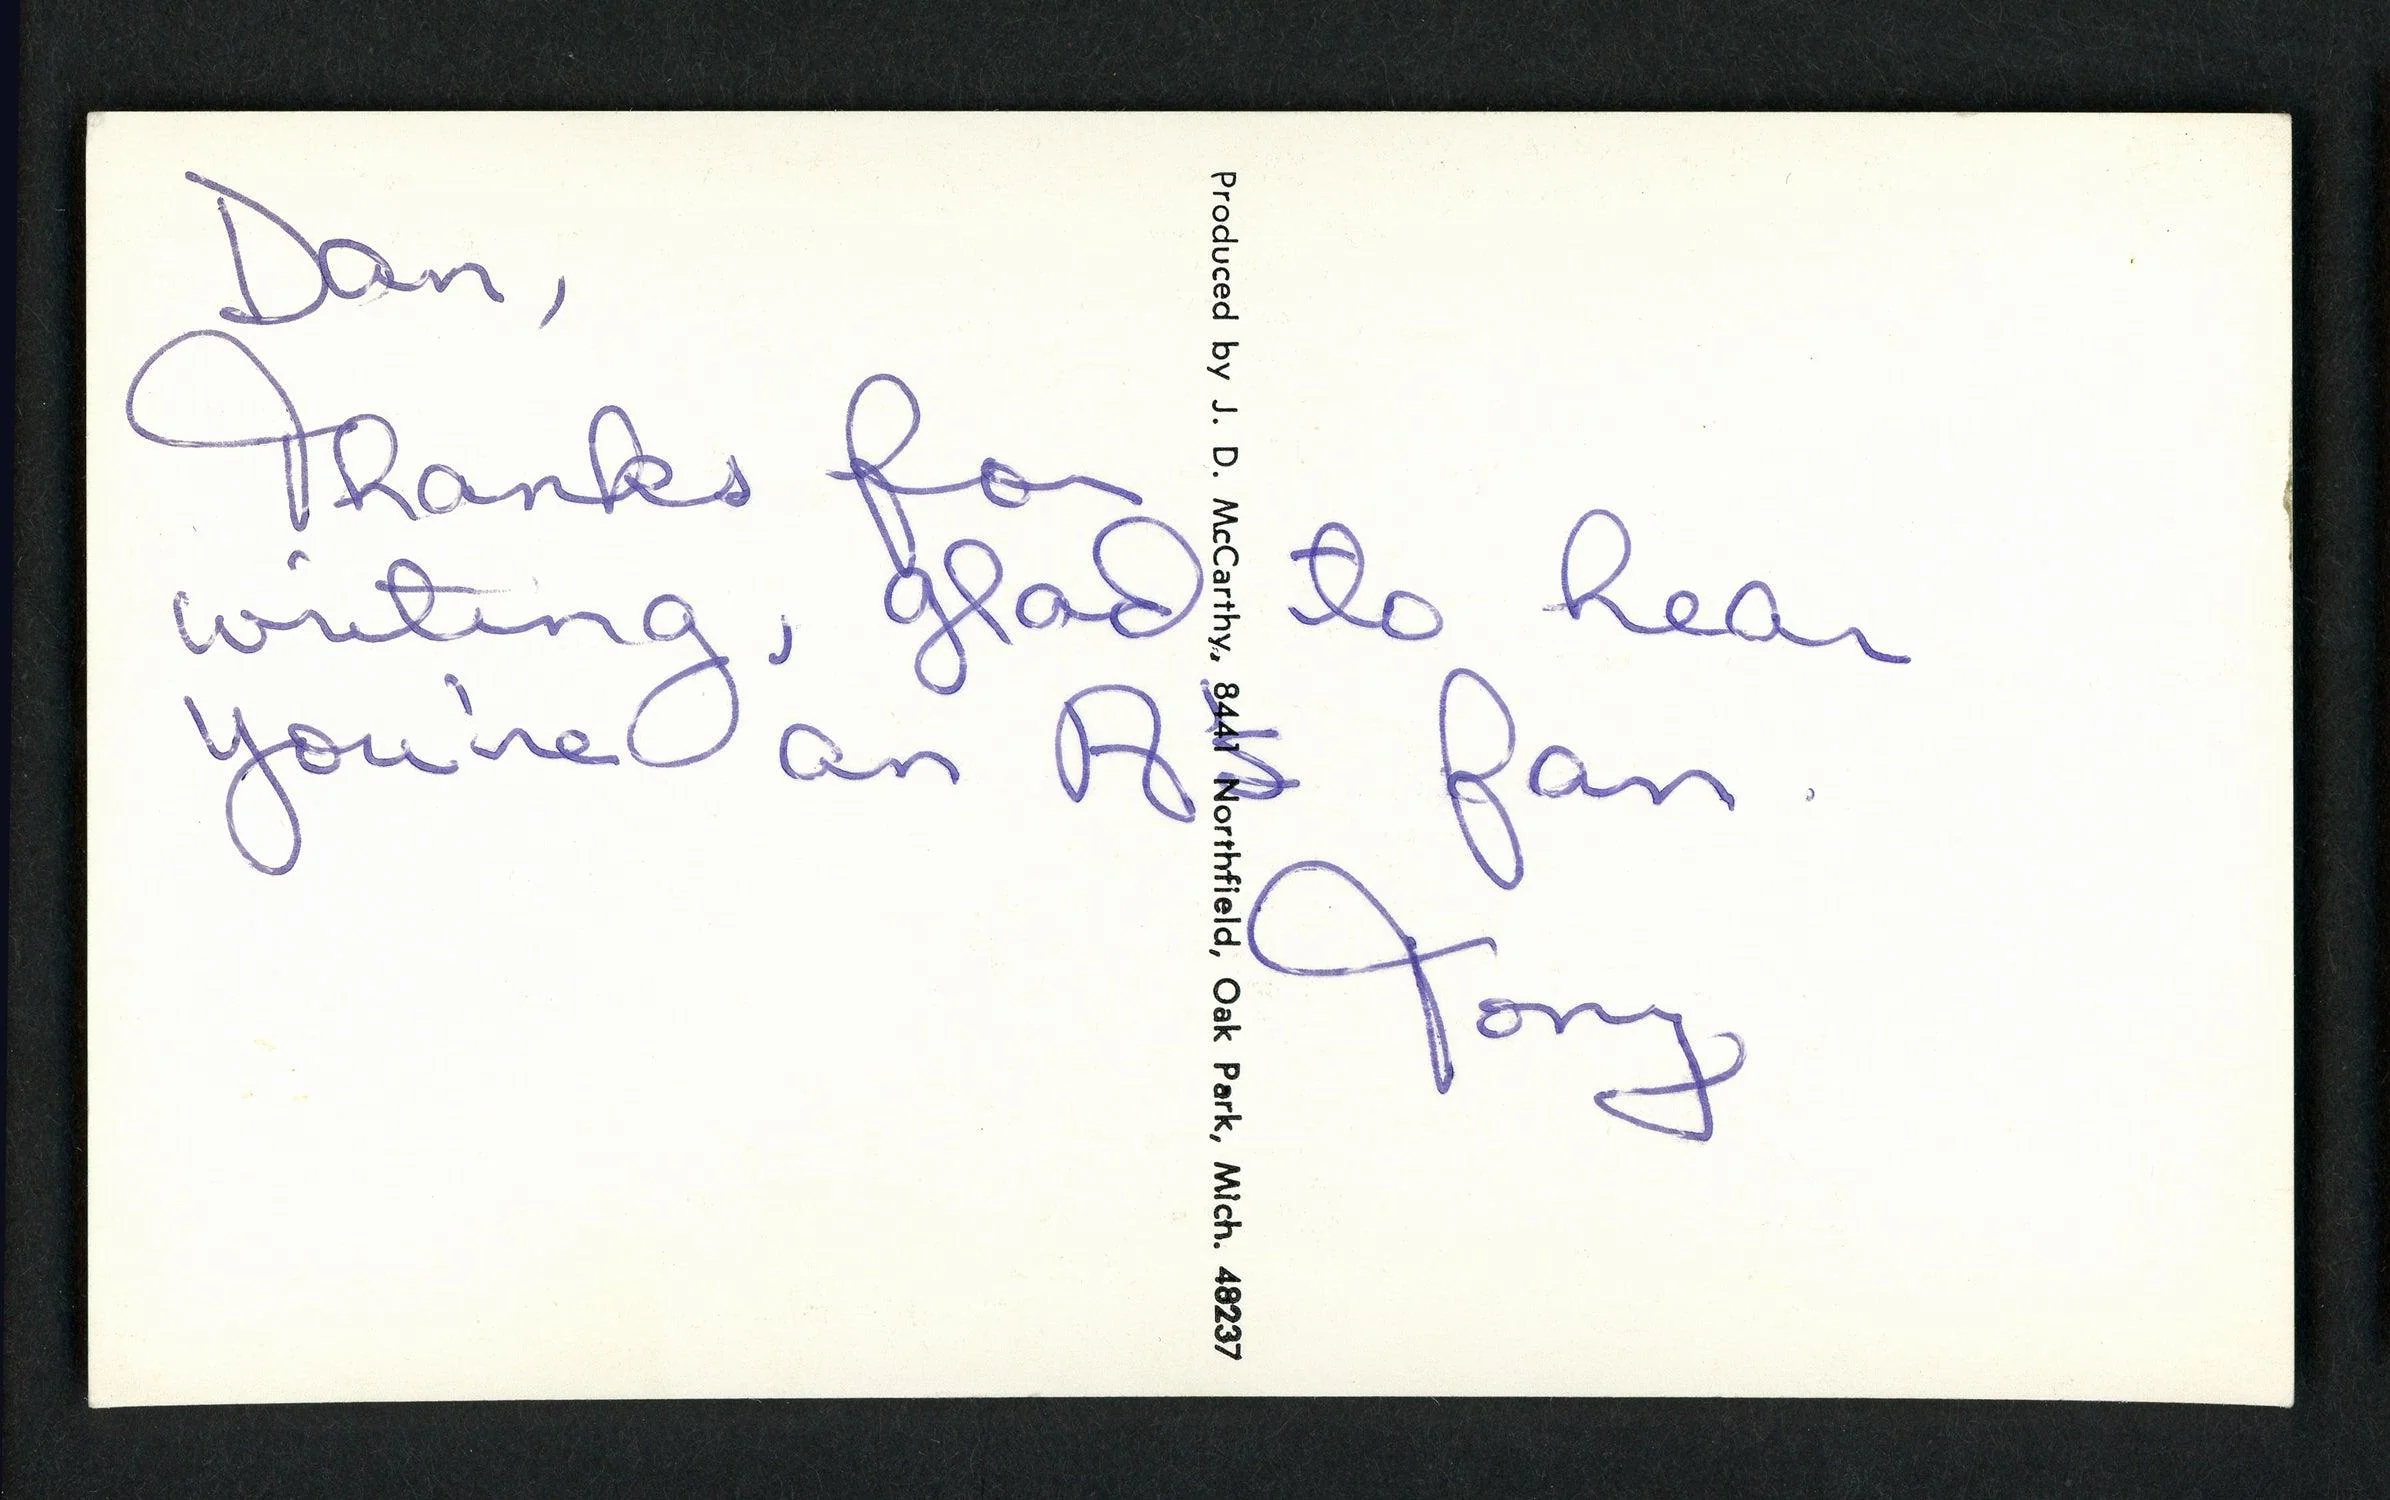 Dan,
Thanks for
writing, glad to hear
you're an A's fan.
Tony
Produced by J. D. McCarthy, 8441 Northfield, Oak Park, Mich. 48237